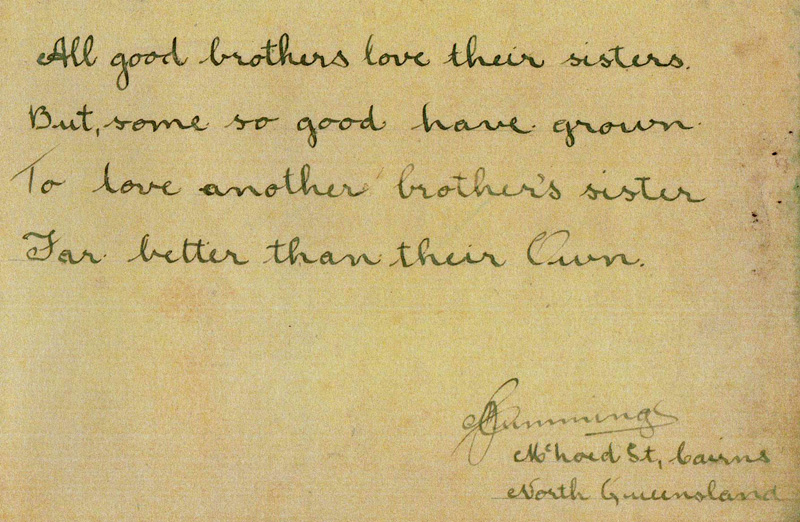 All good brothers love their sisters.
But, some so good have grown
To love another brother's sister
Far better than their Own.
Cummings
St, Cairns
North Queensland